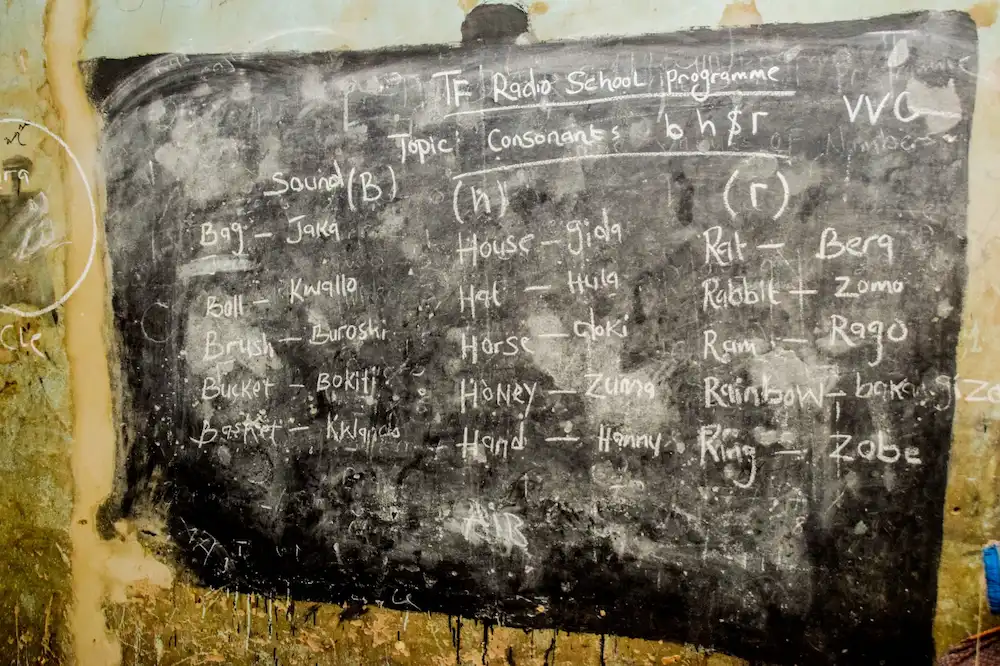 TF Radio School Programme
VVC
Topic: Consonants b h $ r
Sound (B) (h) (r)
Bag – Jaka House – gida Rat – Bera
Ball – Kwallo Hat – Hula Rabbit – Zomo
Brush – Buroshi Horse – doki Ram – Rago
Bucket – Bokiti Honey – Zuma Rainbow – bakan giza
Basket – Hand – Hannu Ring – Zobe
AIR